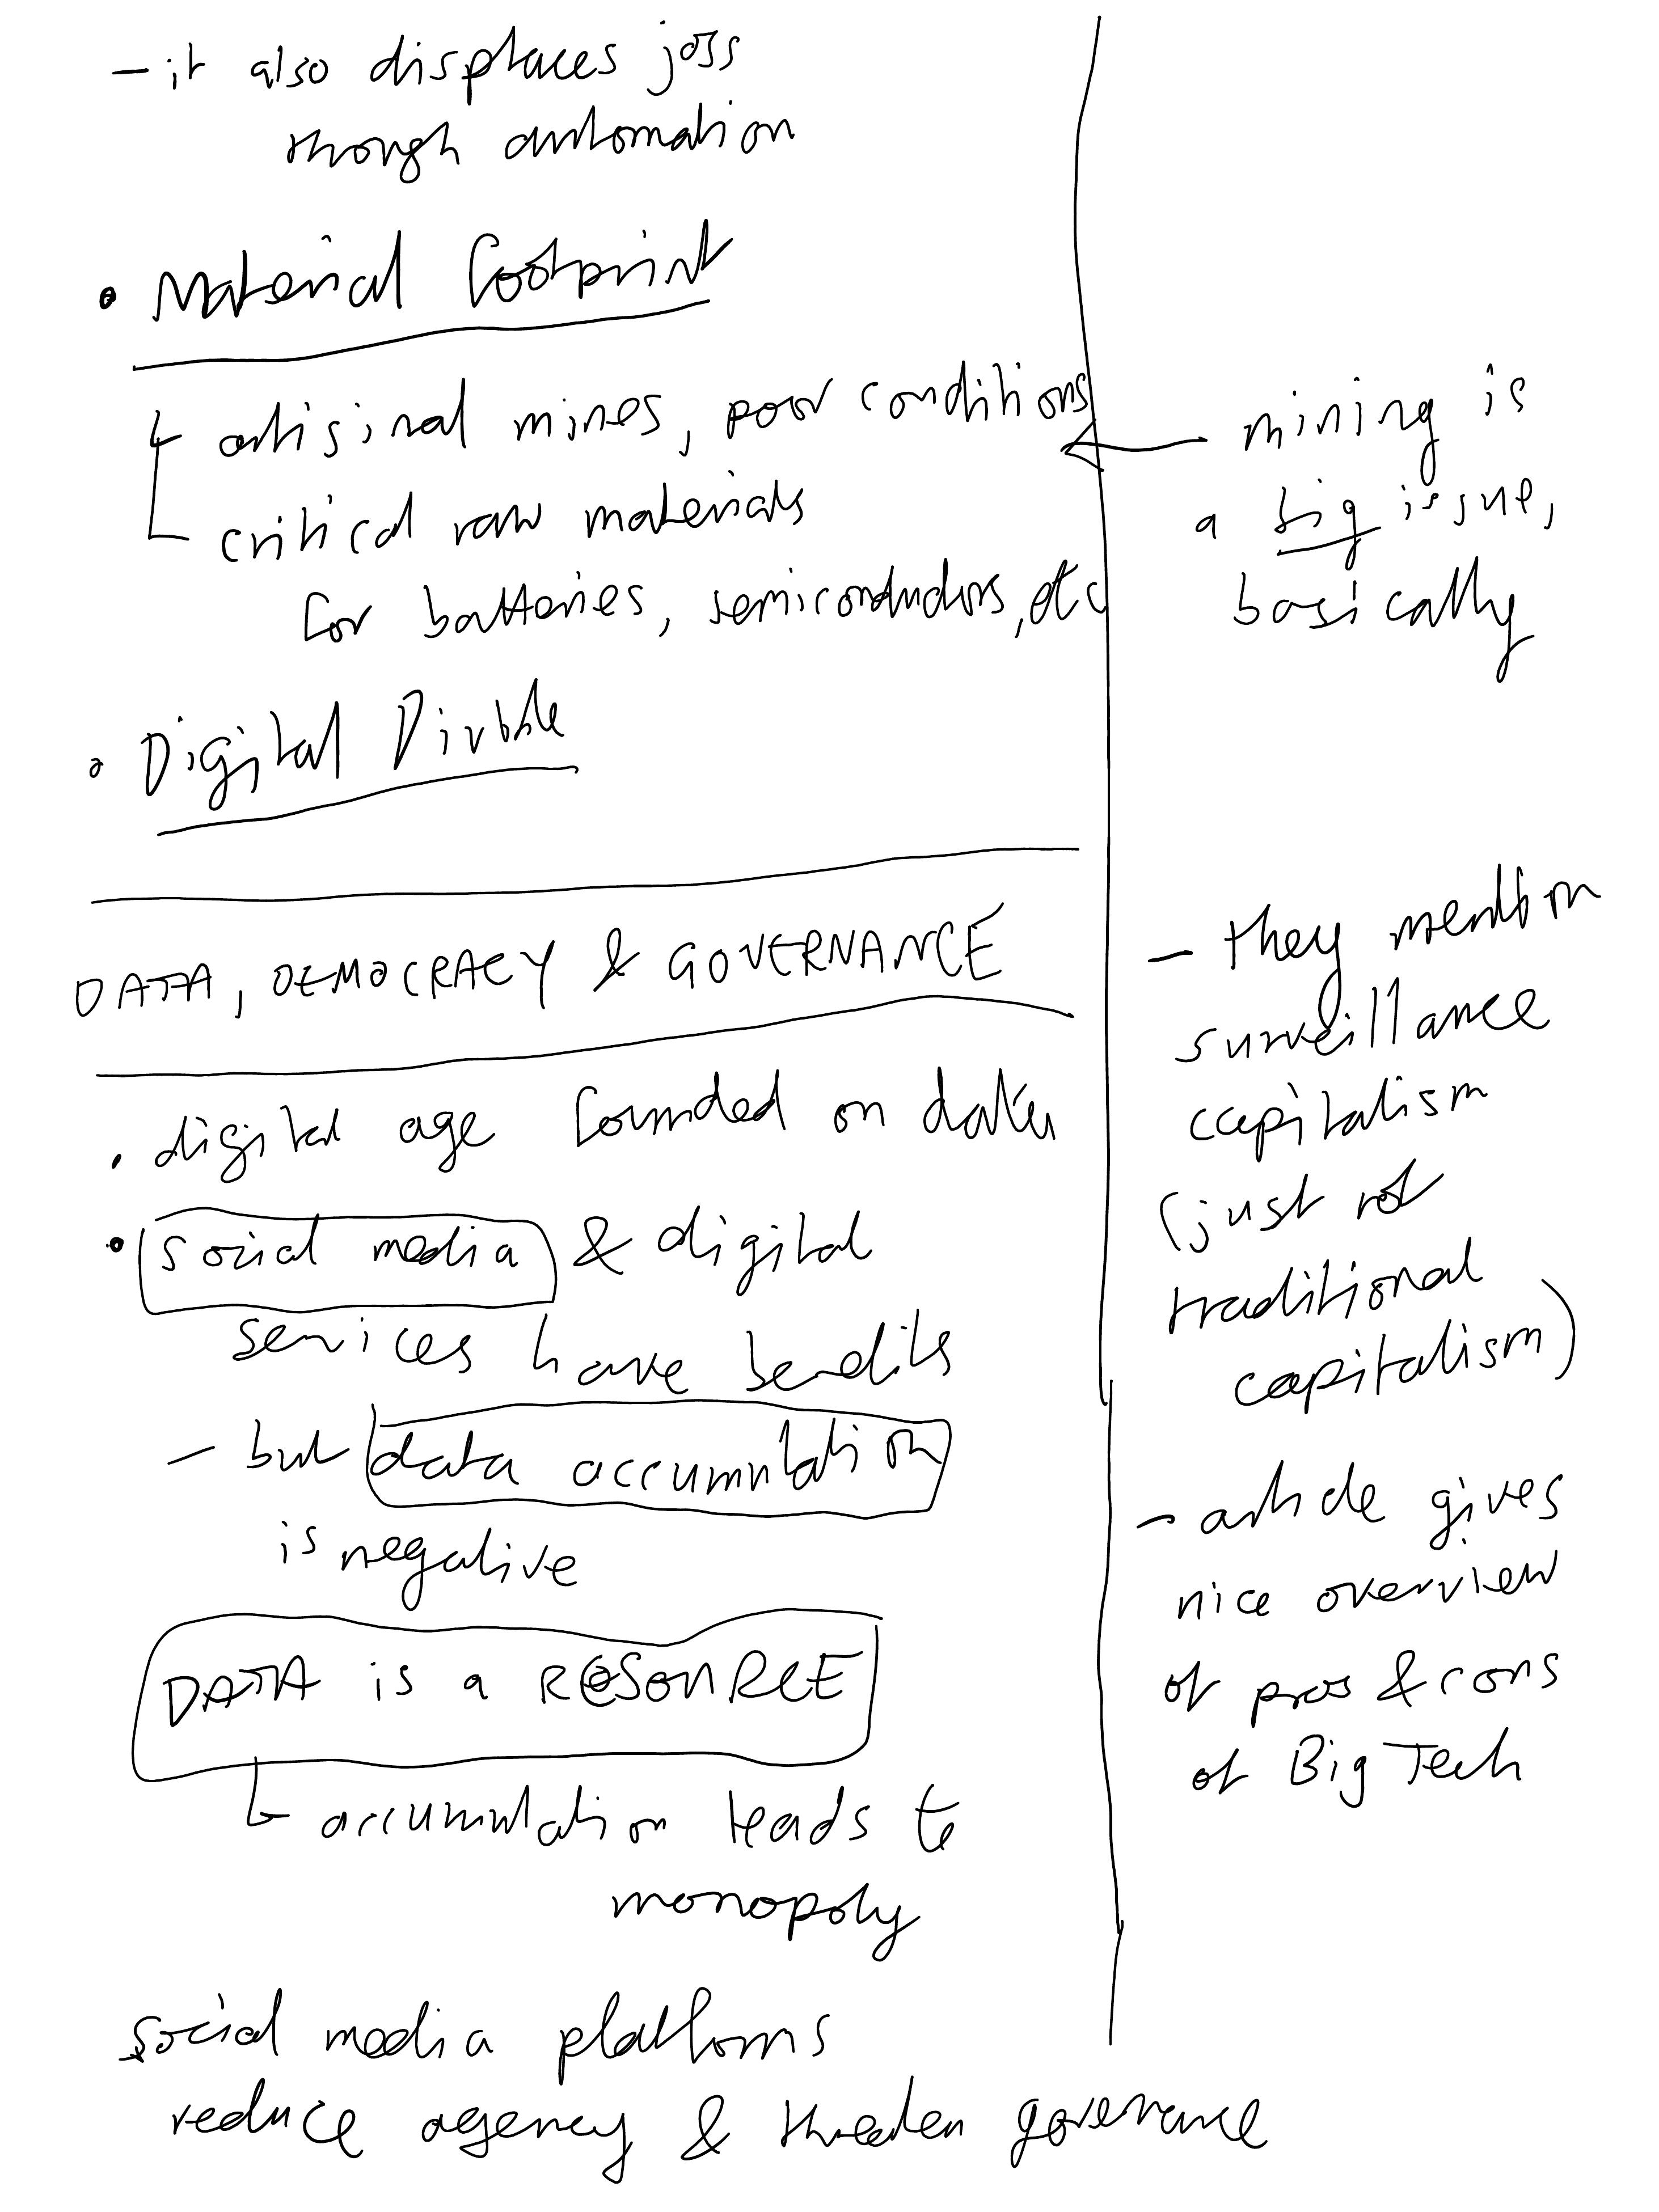 - it also displaces jobs
though automation
• Material Footprint
artisinal mines, poor conditions
critical raw materials
for batteries, semiconductors, etc
• Digital Divide
DATA, DEMOCRACY & GOVERNANCE
• digital age founded on data
• social media & digital
services have benefits
- but data accumulation
is negative
DATA is a RESOURCE
accumulation leads to
monopoly
social media platforms
reduce agency & threaten governance
mining is
a big issue,
basically
- they mention
surveillance
capitalism
(just not
traditional
capitalism)
- article gives
nice overview
of pros & cons
of Big Tech